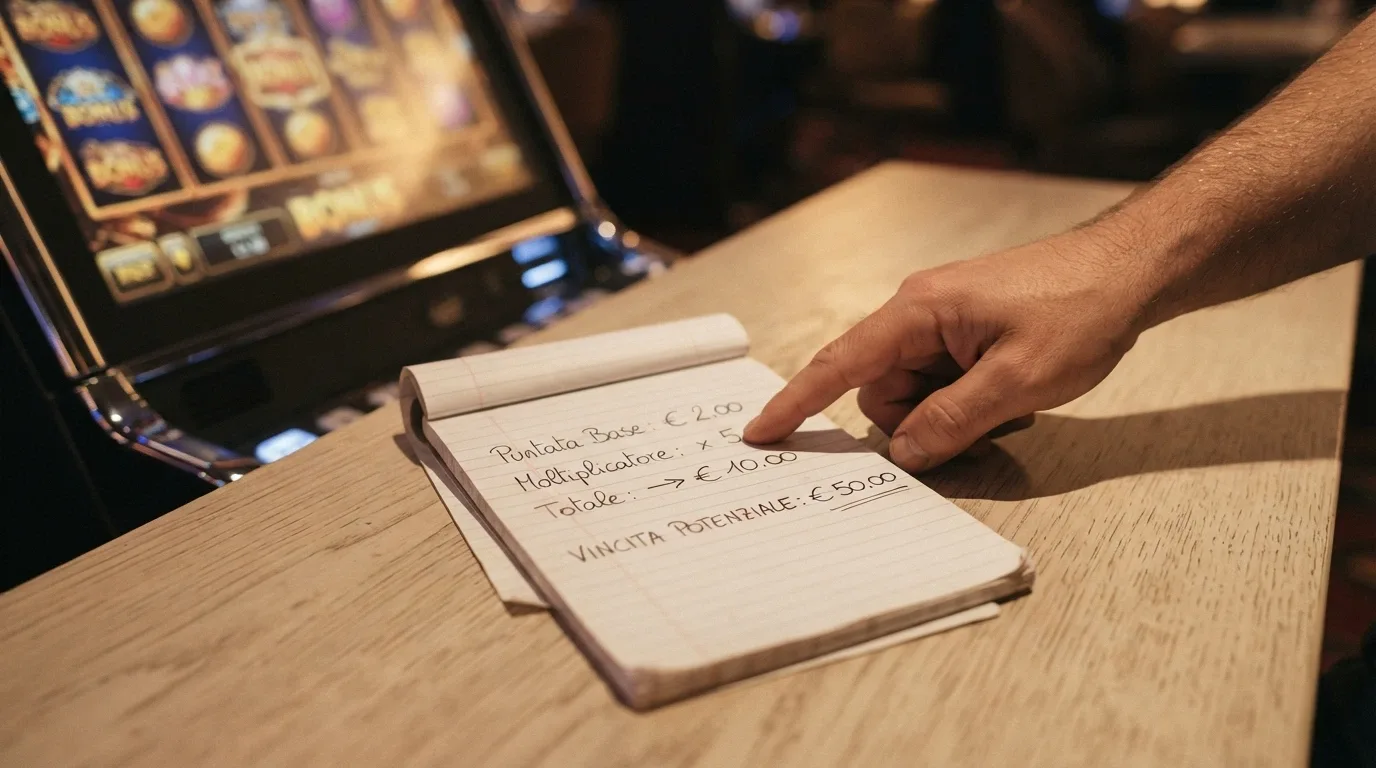 BONUS
BONUS
BONUS
BONUS
BONUS
Puntata Base: € 2.00
Moltiplicatore: × 5
Totale: → € 10.00
VINCITA POTENZIALE: € 50.00